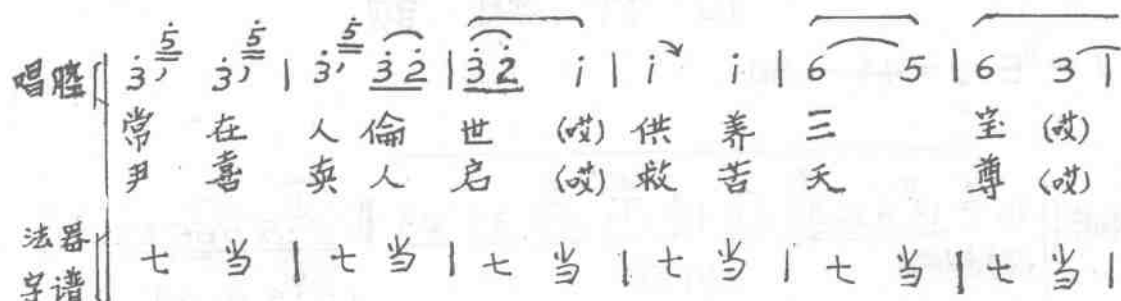 唱腔 3̇ 5 3̇ 5 | 3̇ 5 3̇ 2̇ | 3̇ 2̇ i | i i | 6 5 | 6 3 |
常 在 人 倫 世 (哎) 供 养 三 宝 (哎)
尹 喜 真 人 启 (哎) 救 苦 天 尊 (哎)
法器字谱 七 当 | 七 当 | 七 当 | 七 当 | 七 当 | 七 当 |